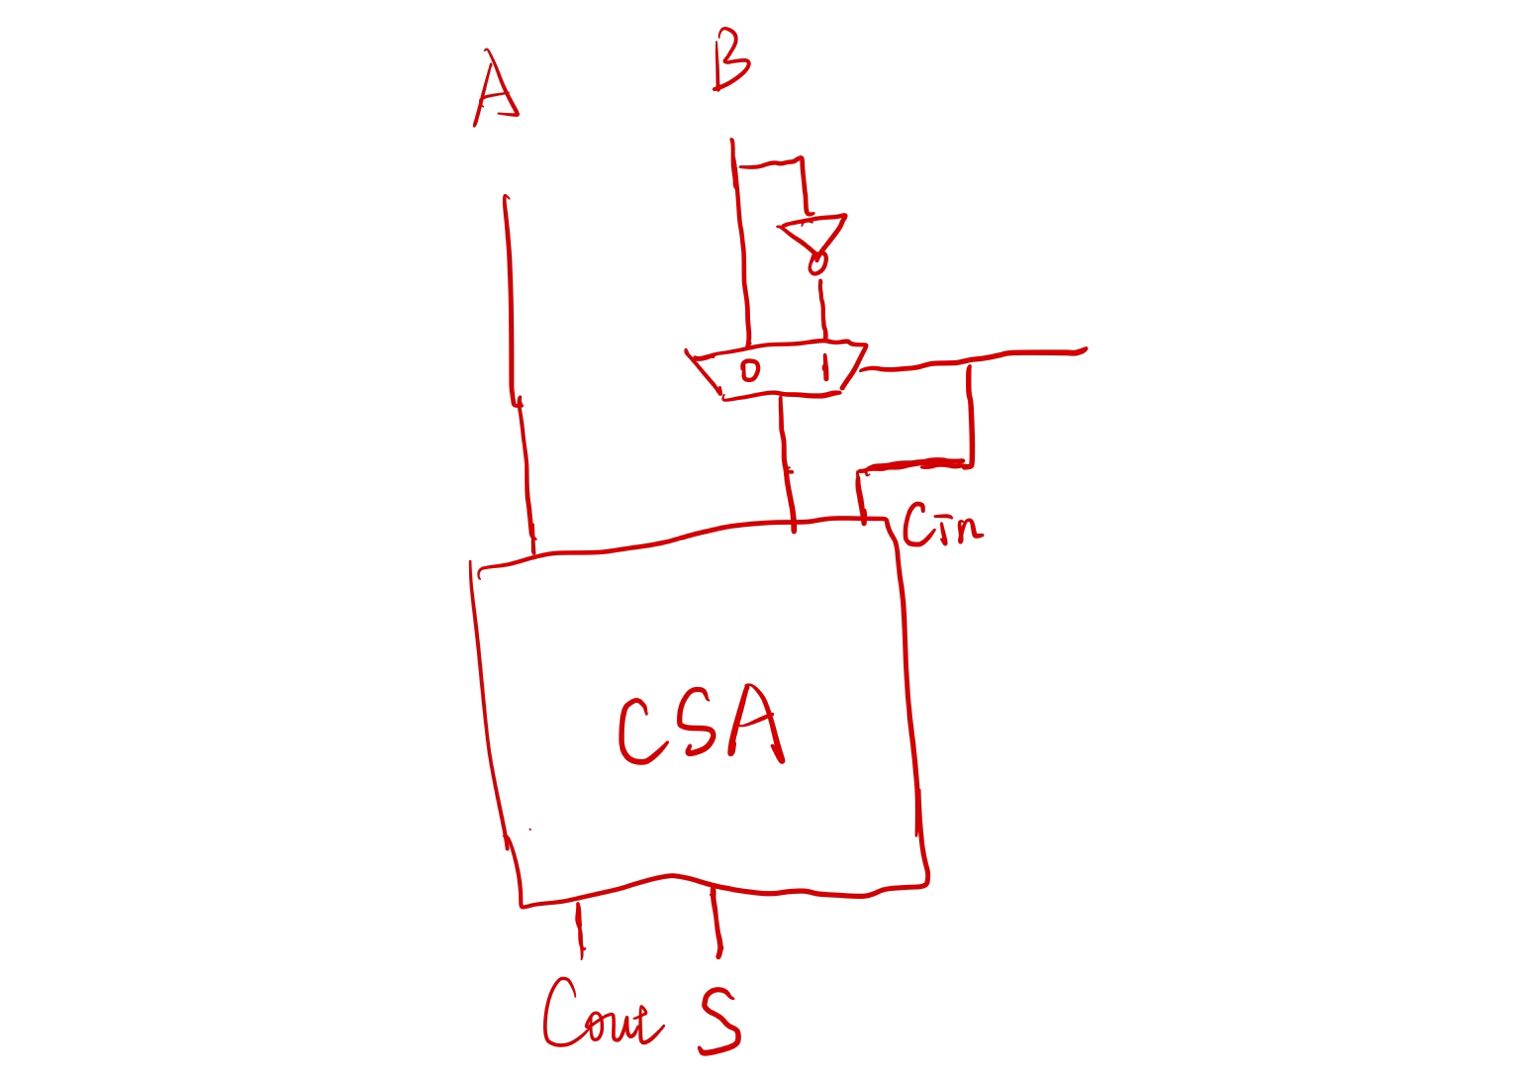 A
B
0 1
Cin
CSA
Cout S